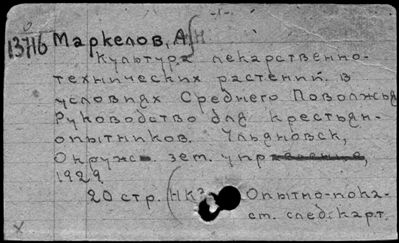 13716 Маркелов, А. Н.
Культура лекарственно-
технических растений в
условиях Среднего Поволжья
Руководство для крестьян-
опытников. Ульяновск,
Окруж. зем. управление,
1929
20 стр. (НКЗ Опытно-пока-
ст. след. карт.